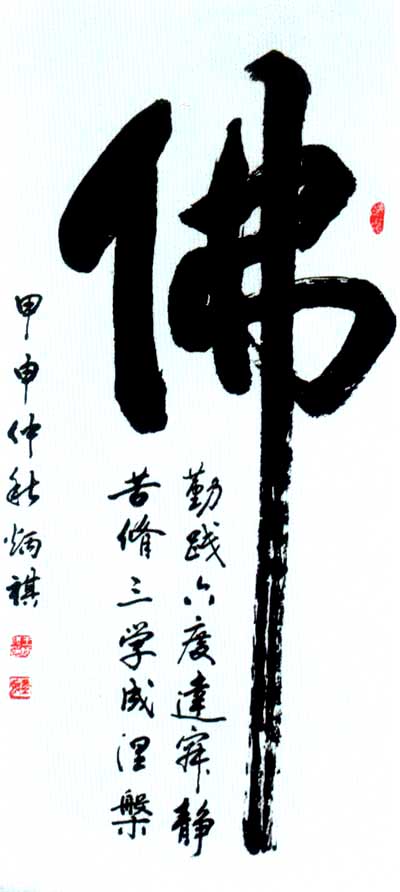 佛
勤践六度達寂静
苦脩三学成涅槃
甲申仲秋炳祺